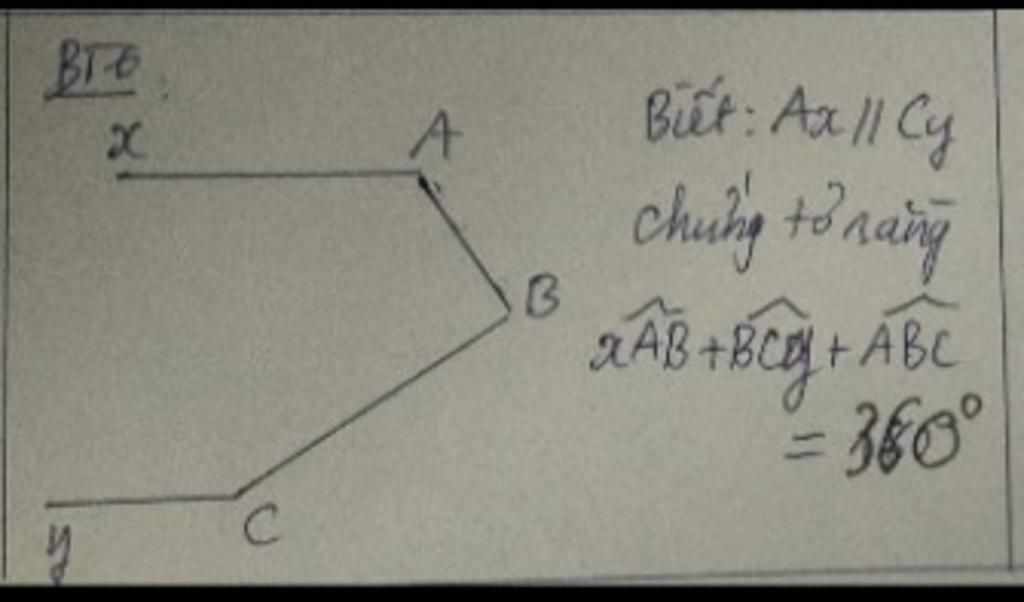 BT6
x
A
Biết: Ax // Cy
chứng tỏ rằng
B
xAB + BCy + ABC
= 360°
y
C